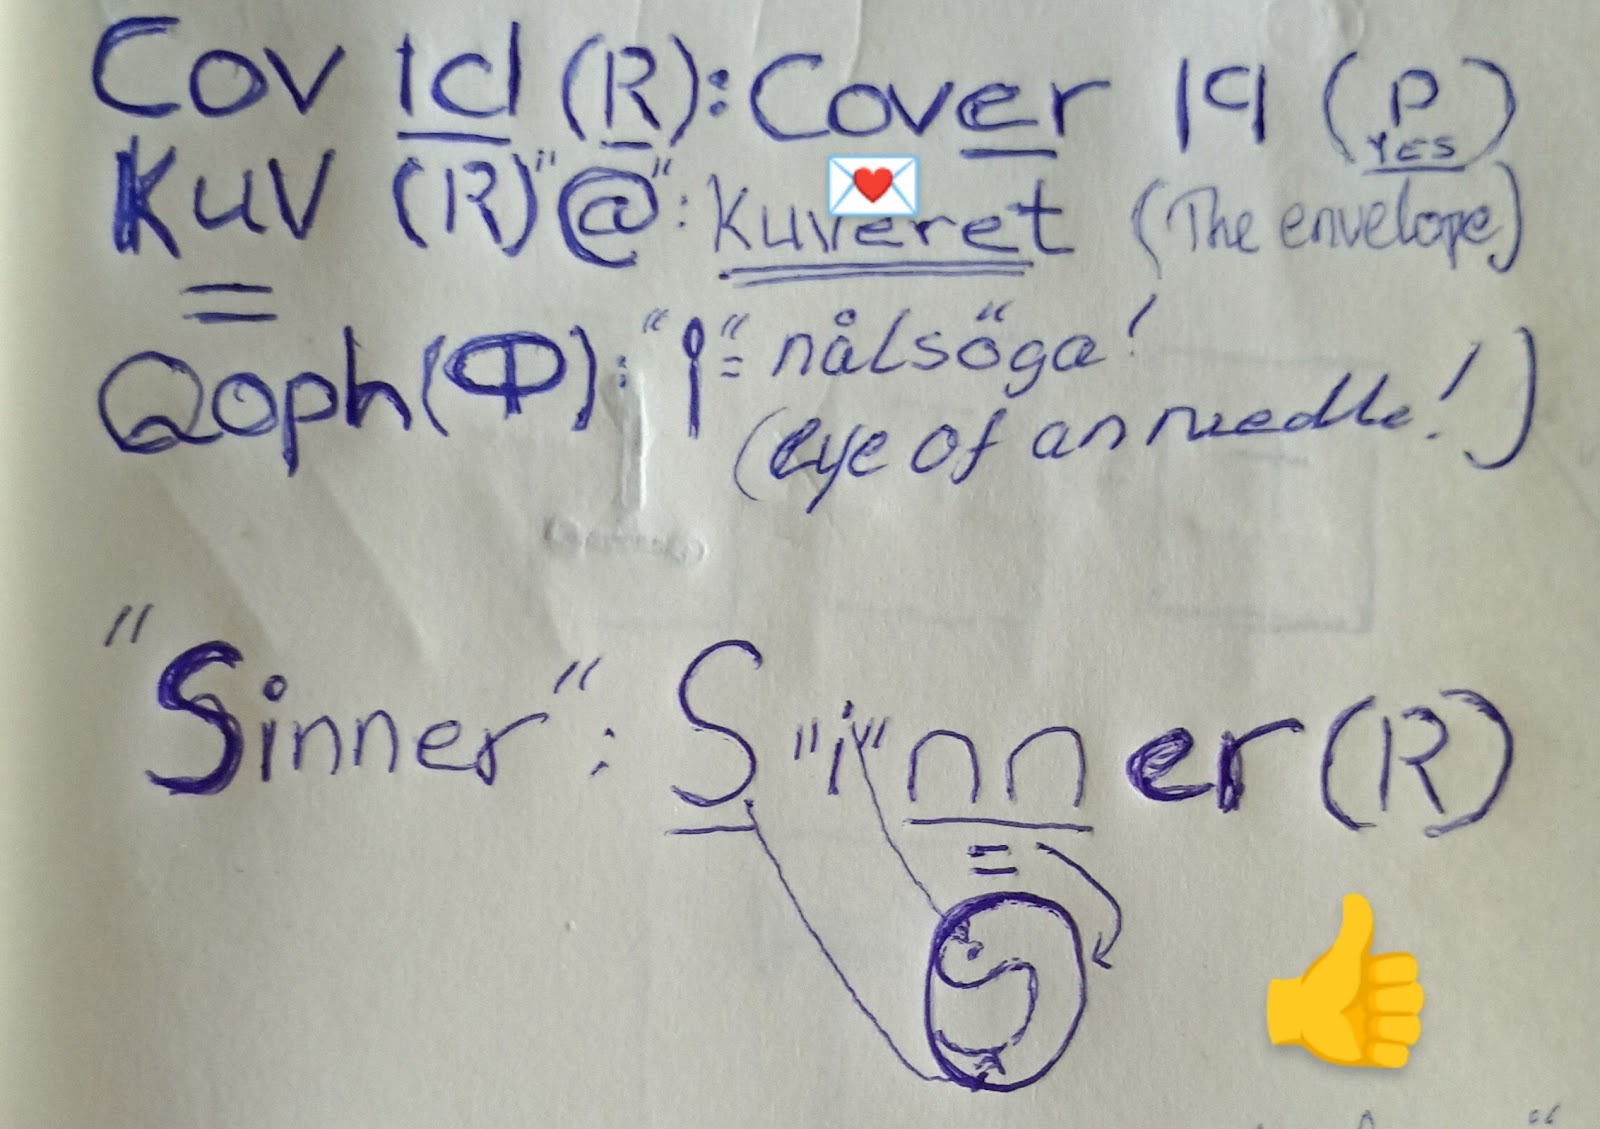 Cov 1d (R): Cover 19 (P YES)
Kuv (R)"@": Kuveret (The envelope)
=
Qoph (Φ): "؟" = nålsöga!
(eye of an needle!)
"Sinner": S "i" nn er (R)
=